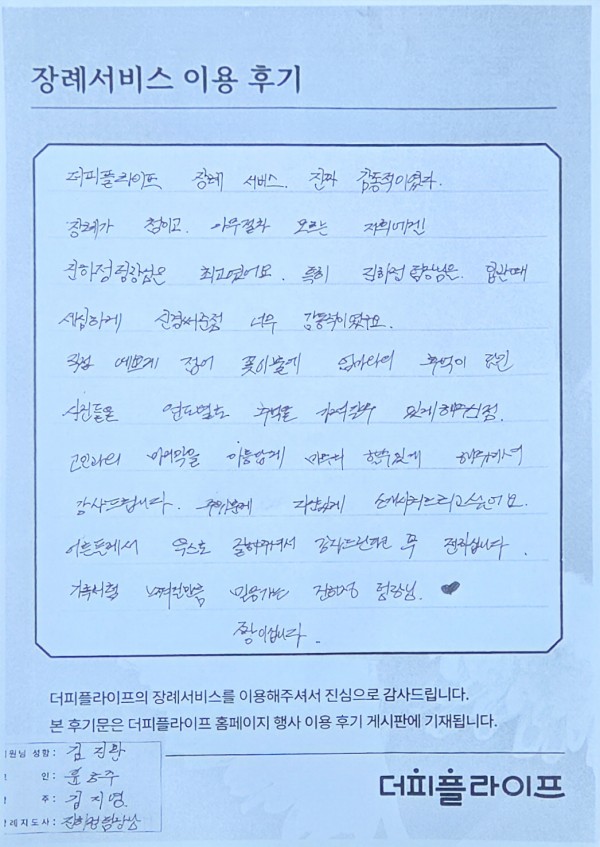 장례서비스 이용 후기
더피플라이프 장례 서비스. 진짜 감동적이였다.
장례가 첨이고. 아무절차 모르는 저희에겐!
진하정팀장님은 최고였어요. 특히 진하정팀장님은. 입관때
세심하게 신경써준점 너무 감동적이였구요.
직접 예쁘게 접어 꽃이불에 엄마와의 추억이 담긴
사진들을 연도별로 추억을 가져갈수 있게해주신점.
고인과의 마지막을 아름답게 마무리 할수있게 해주셔서
감사드립니다. 주위분께 자신있게 소개시켜드리고싶어요.
어른들께서 목소로 감사드린다면 꼭 전하십니다.
가족처럼 느껴진만큼 믿음가는 진하정 팀장님. ♥
짱이십니다.
더피플라이프의 장례서비스를 이용해주셔서 진심으로 감사드립니다.
본 후기문은 더피플라이프 홈페이지 행사 이용 후기 게시판에 기재됩니다.
원님 성함: 김진환
인: 윤승주
주: 김지영
례지도사: 진하정팀장님
더피플라이프